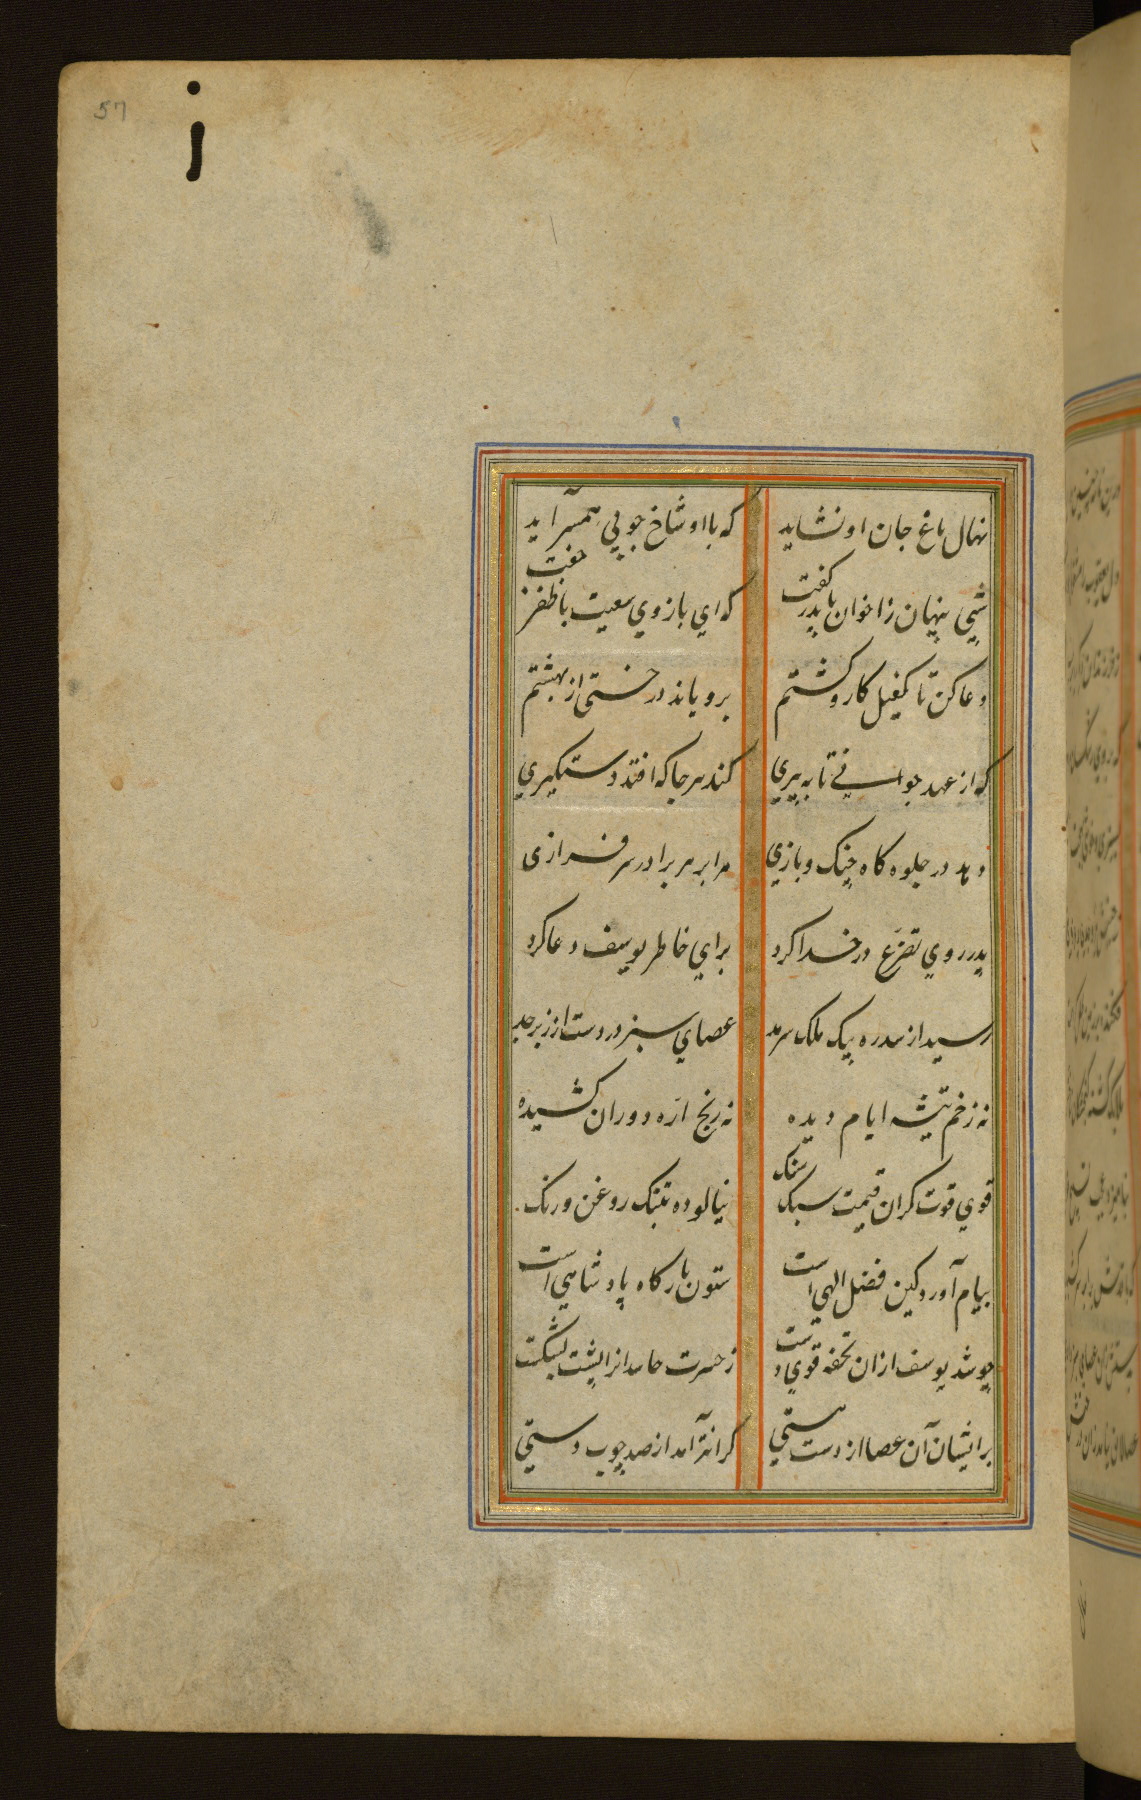 57
نهال باغ جان او نشاید که با او شاخ چوبی همسر آید
شبی پنهان ز اخوان با پدر گفت که ای بازوی سعیت با ظفر جفت
دعا کن تا کفیل کار و کشتم برویاند درختی از بهشتم
که از عهد جوانی تا به پیری کند هر جا که افتد دستگیری
دهد در جلوه گاه جنگ و بازی مرا بر هر برادر سرفرازی
پدر روی تضرع در خدا کرد برای خاطر یوسف دعا کرد
رسید از سدره پیک ملک سرمد عصای سبز در دست از زبرجد
نه زخم تیشه ایام دیده نه رنج اره دوران کشیده
قوی قوت گران قیمت سبک سنگ نیالوده به ننگ روغن و رنگ
پیام آورد کین فضل الهی است ستون بارگاه پادشاهی است
چو شد یوسف ازان تحفه قوی دست ز حسرت حاسدانرا پشت بشکست
بر ایشان آن عصا از دست هستی گرانتر آمد از صد چوب دستی